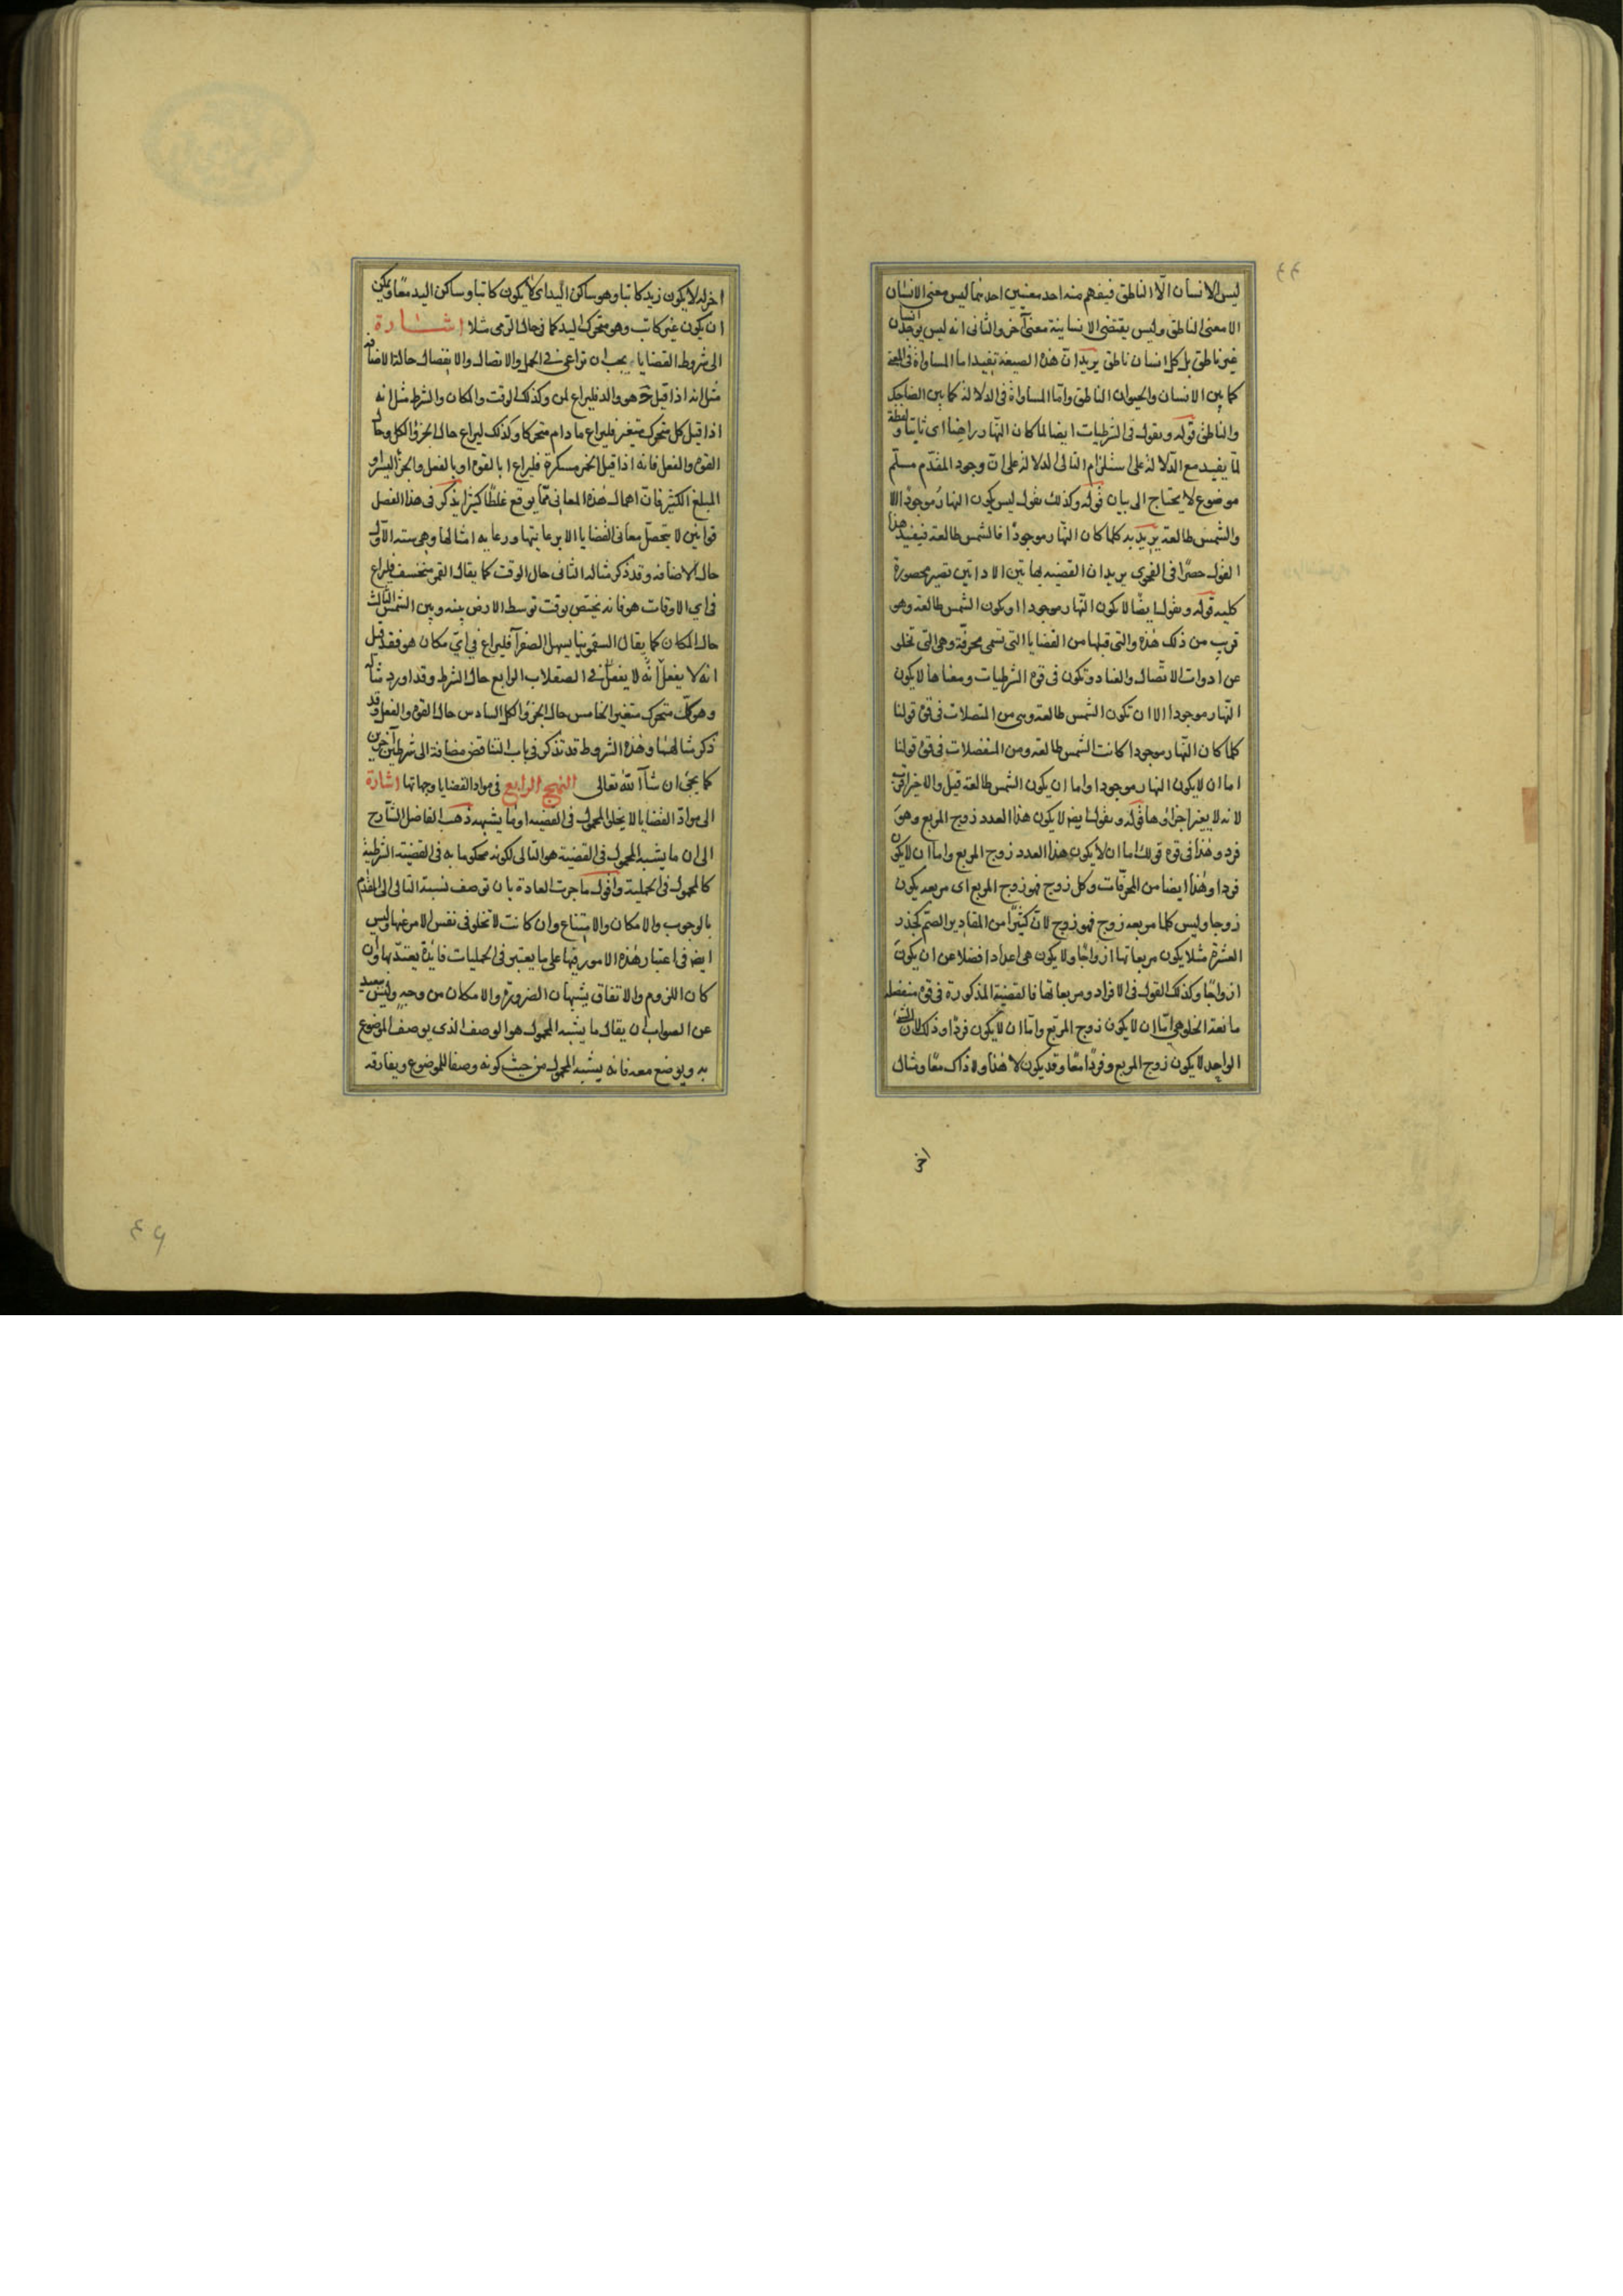 ٤٤
ليس الانسان الّا الناطق فيفهم منه احد معنيين احدهما ليس معنى الانسان
الا معنى الناطق وليس يقتضى الانسانية معنى آخر والثانى انه ليس يوجد انسان
غير ناطق بل كل انسان ناطق يريد ان هذه الصيغة تفيد اما المساواة فى
كما بين الانسان والحيوان الناطق واما المساواة فى الدلالة كما بين الضاحك
والناطق قوله ويقول فى الشرطيات ايضا لما كان النهار راهنا اى ثابتا ولفظة
لمّا يفيد مع الدلالة على استلزام التالى الدلالة على ان وجود المقدّم مسلّم
موضوع لا يحتاج الى بيان قوله وكذلك يقول ليس يكون النهار موجودا الا
والشمس طالعة يريد به كلما كان النهار موجودا فالشمس طالعة فيفيد هذا
القول حصرا فى الفحوى يريد ان القضية بهاتين الاداتين تصير محصورة
كلية قوله ويقول ايضًا لا يكون النهار موجودا او يكون الشمس طالعة وهو
قريب من ذلك هذه والتى قبلها من القضايا التى تسمى محرفة وهى التى تخلو
عن ادوات الاتّصال والعناد وتكون فى قوة الشرطيات ومعناها لا يكون
النهار موجودا الا ان تكون الشمس طالعة وهى من المتصلات فى قوة قولنا
كلما كان النهار موجودا كانت الشمس طالعة ومن المنفصلات فى قوة قولنا
اما ان لا يكون النهار موجودا واما ان يكون الشمس طالعة قيل والاخير اقرب
لانه لا يغير اجزاؤها قوله ويقول ايض لا يكون هذا العدد زوج المربع وهو
فرد وهذا فى قوة قولك اما ان لا يكون هذا العدد زوج المربع واما ان لا يكون
فردا وهذا ايضا من المحرفات وكل زوج فهو زوج المربع اى مربعه يكون
زوجا وليس كلما مربعه زوج فهو زوج لان كثيرا من المقادير الصم كجذر
العشرة مثلا يكون مربعاتها ازواجًا ولا يكون هى اعدادا فضلا عن ان يكون
ازواجًا وكذلك القول فى الافراد ومربعاتها فالقضية المذكورة فى قوة منفصلة
مانعة الخلو هى اما ان لا يكون زوج المربع واما ان لا يكون فردًا وذلك لان
الواحد لا يكون زوج المربع وفردًا معًا وقد يكون لا هذا ولا ذاك معًا ومثال
اخر
اخر له لا يكون زيد كاتبا وهو ساكن اليد اى لا يكون كاتبا وساكن اليد معًا ويمكن
ان يكون غير كاتب وهو متحرك اليد كما فى حال الرمى مثلا اشارة
الى شروط القضايا يجب ان تراعى فى الحمل والاتصال والانفصال حال الاضافة
مثل انه اذا قيل ج هو والد فليراع لمن وكذلك الوقت والمكان والشرط مثل انه
اذا قيل كل متحرك متغير فليراع ما دام متحركا وكذلك ليراع حال الجزؤ الكل وحال
القوة والفعل فانه اذا قيل الخمر مسكرة فليراع ابالقوة او بالفعل والجزؤ اليسير او
المبلغ الكثير فان اهمال هذه المعانى ممّا يوقع غلطًا كثيرا يذكر فى هذا الفصل
قوانين لا يتحصل معانى القضايا الا برعايتها ورعاية امثالها وهى ستة الاول
حال الاضافة وقد ذكر مثاله الثانى حال الوقت كما يقال القمر منخسف فليراع
فى اى الاوقات هو فانه يختص بوقت توسط الارض بينه وبين الشمس الثالث
حال المكان كما يقال السقمونيا يسهل الصفرآ فليراع فى اىّ مكان هو فقد قيل
انه لا يفعل انه لا يفعل فى الصقلاب الرابع حال الشرط وقد اورد مثاله
وهو كل متحرك متغير الخامس حال الجزؤ الكل السادس حال القوة والفعل وقد
ذكر مثالهما وهذه الشروط قد تذكر فى باب التناقض مضافة الى شرطين آخرين
كما يجئ ان شآ الله تعالى النهج الرابع فى مواد القضايا وجهاتها اشارة
الى مواد القضايا لا يخلو المحمول فى القضية او ما يشبهه ذهب الفاضل الشارح
الى ان ما يشبه المحمول فى القضية هو التالى لكونه محكوما به فى القضية الشرطية
كالمحمول فى الحملية واقول ما جرت العادة بان توصف نسبة التالى الى المقدم
بالوجوب والامكان والامتناع وان كانت لا تخلو فى نفس الامر عنها وليس
ايض فى اعتبار هذه الامور فيها على ما يعتبر فى الحمليات فائدة يعتد بها وان
كان اللزوم والاتفاق يشبهان الضرورة والامكان من وجه وليس ببعيد
عن الصواب ان يقال ما يشبه المحمول هو الوصف الذى يوصف الموضوع
به ويوضع معه فانه يشبه المحمول من حيث كونه وصفا للموضوع ويفارقه
٤٩